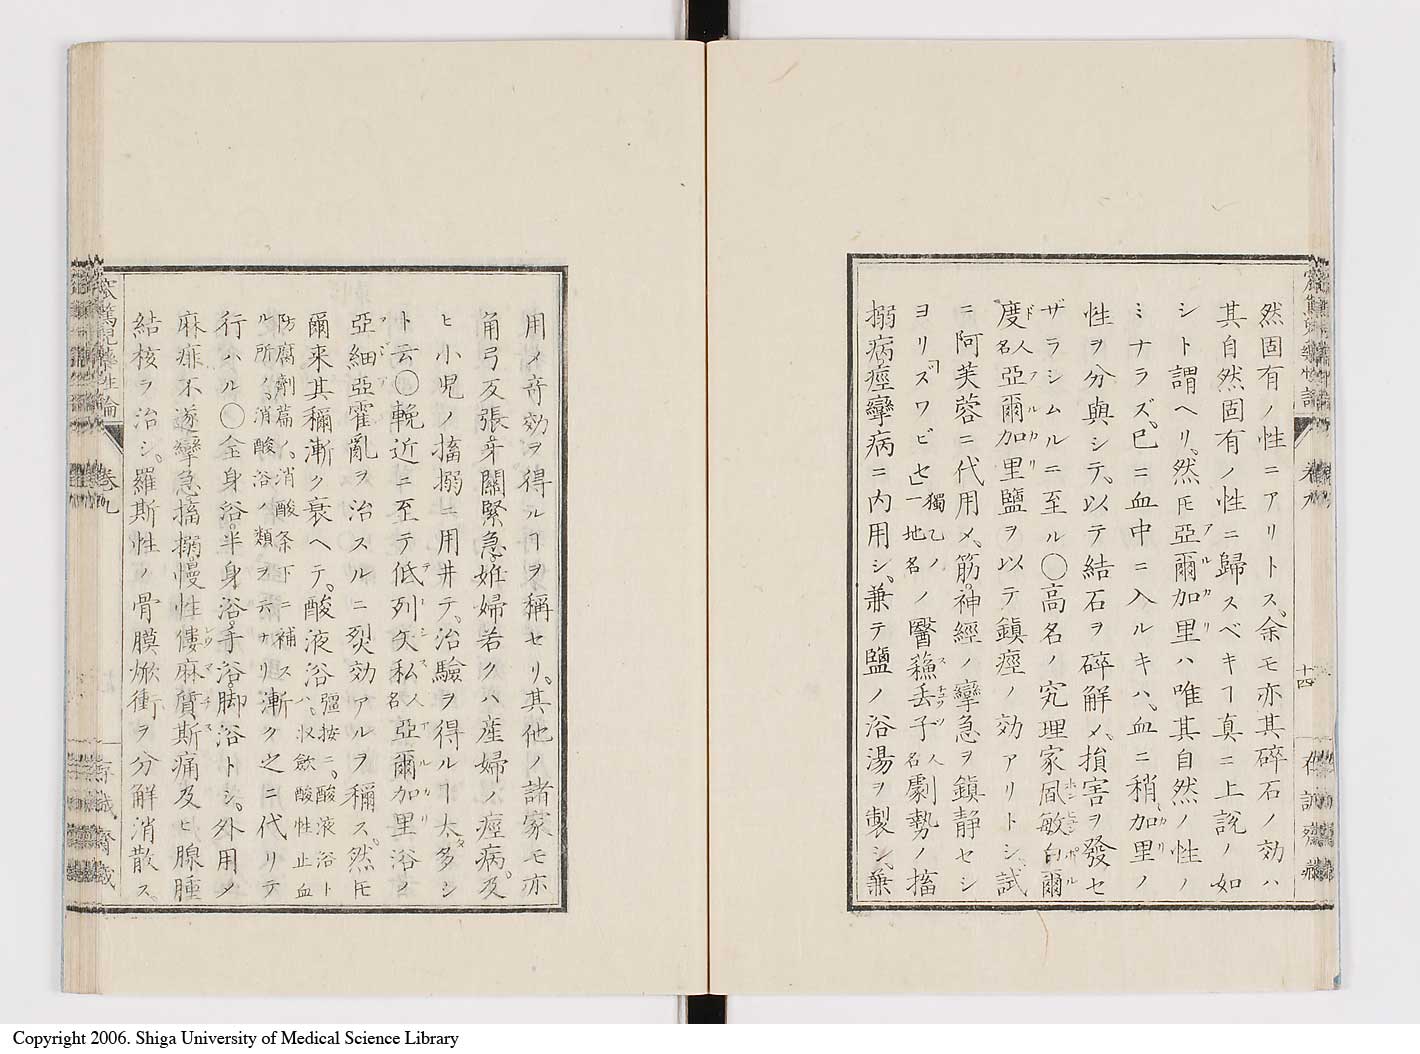 然固有ノ性ニアリトス、余モ亦其碎石ノ効ハ
其自然固有ノ性ニ歸スベキヿ真ニ上說ノ如
シト謂ヘリ、然𪜈亞爾加里ハ唯其自然ノ性ノ
ミナラズ、已ニ血中ニ入ルキハ、血ニ稍、加里ノ
性ヲ分與シテ、以テ結石ヲ碎解〆、損害ヲ發セ
ザラシムルニ至ル〇高名ノ究理家凬敏白爾
度人名亞爾加里鹽ヲ以テ鎮痙ノ効アリトシ、試
ニ阿芙蓉ニ代用〆、筋、神經ノ攣急ヲ鎮静セシ
ヨリ「ズワビセ」獨乙ノ一地名ノ醫蘓丢子人名劇勢ノ搐
搦病、痙攣病ニ内用シ、兼テ鹽ノ浴湯ヲ製シ、兼
用〆竒効ヲ得ルヲヲ稱セリ、其他ノ諸家モ亦
角弓反張、牙關緊急、姙婦若クハ産婦ノ痙病、及
ヒ小児ノ搐搦ニ用井テ、治驗ヲ得ルヿ太多シ
ト云〇輓近ニ至テ低列矢私人名亞爾加里浴ノ
亞細亞霍亂ヲ治スルニ烈効アルヲ稱ス、然𪜈
爾来其稱漸ク衰ヘテ、酸液浴彊按ニ、酸液浴トハ、収歛酸性止血
防腐劑篇ノ、消酸条下ニ補ス
ル所ノ、消酸浴ノ類ヲ云ナリ漸ク之ニ代リテ
行ハル〇全身浴、半身浴、手浴、脚浴トシ、外用〆
麻痱不遂、攣急、搐搦、慢性僂麻質斯痛及ヒ腺腫
結核ヲ治シ、羅斯性ノ骨膜焮衝ヲ分解消散ス、
卷九
十四
卷九
Copyright 2006. Shiga University of Medical Science Library